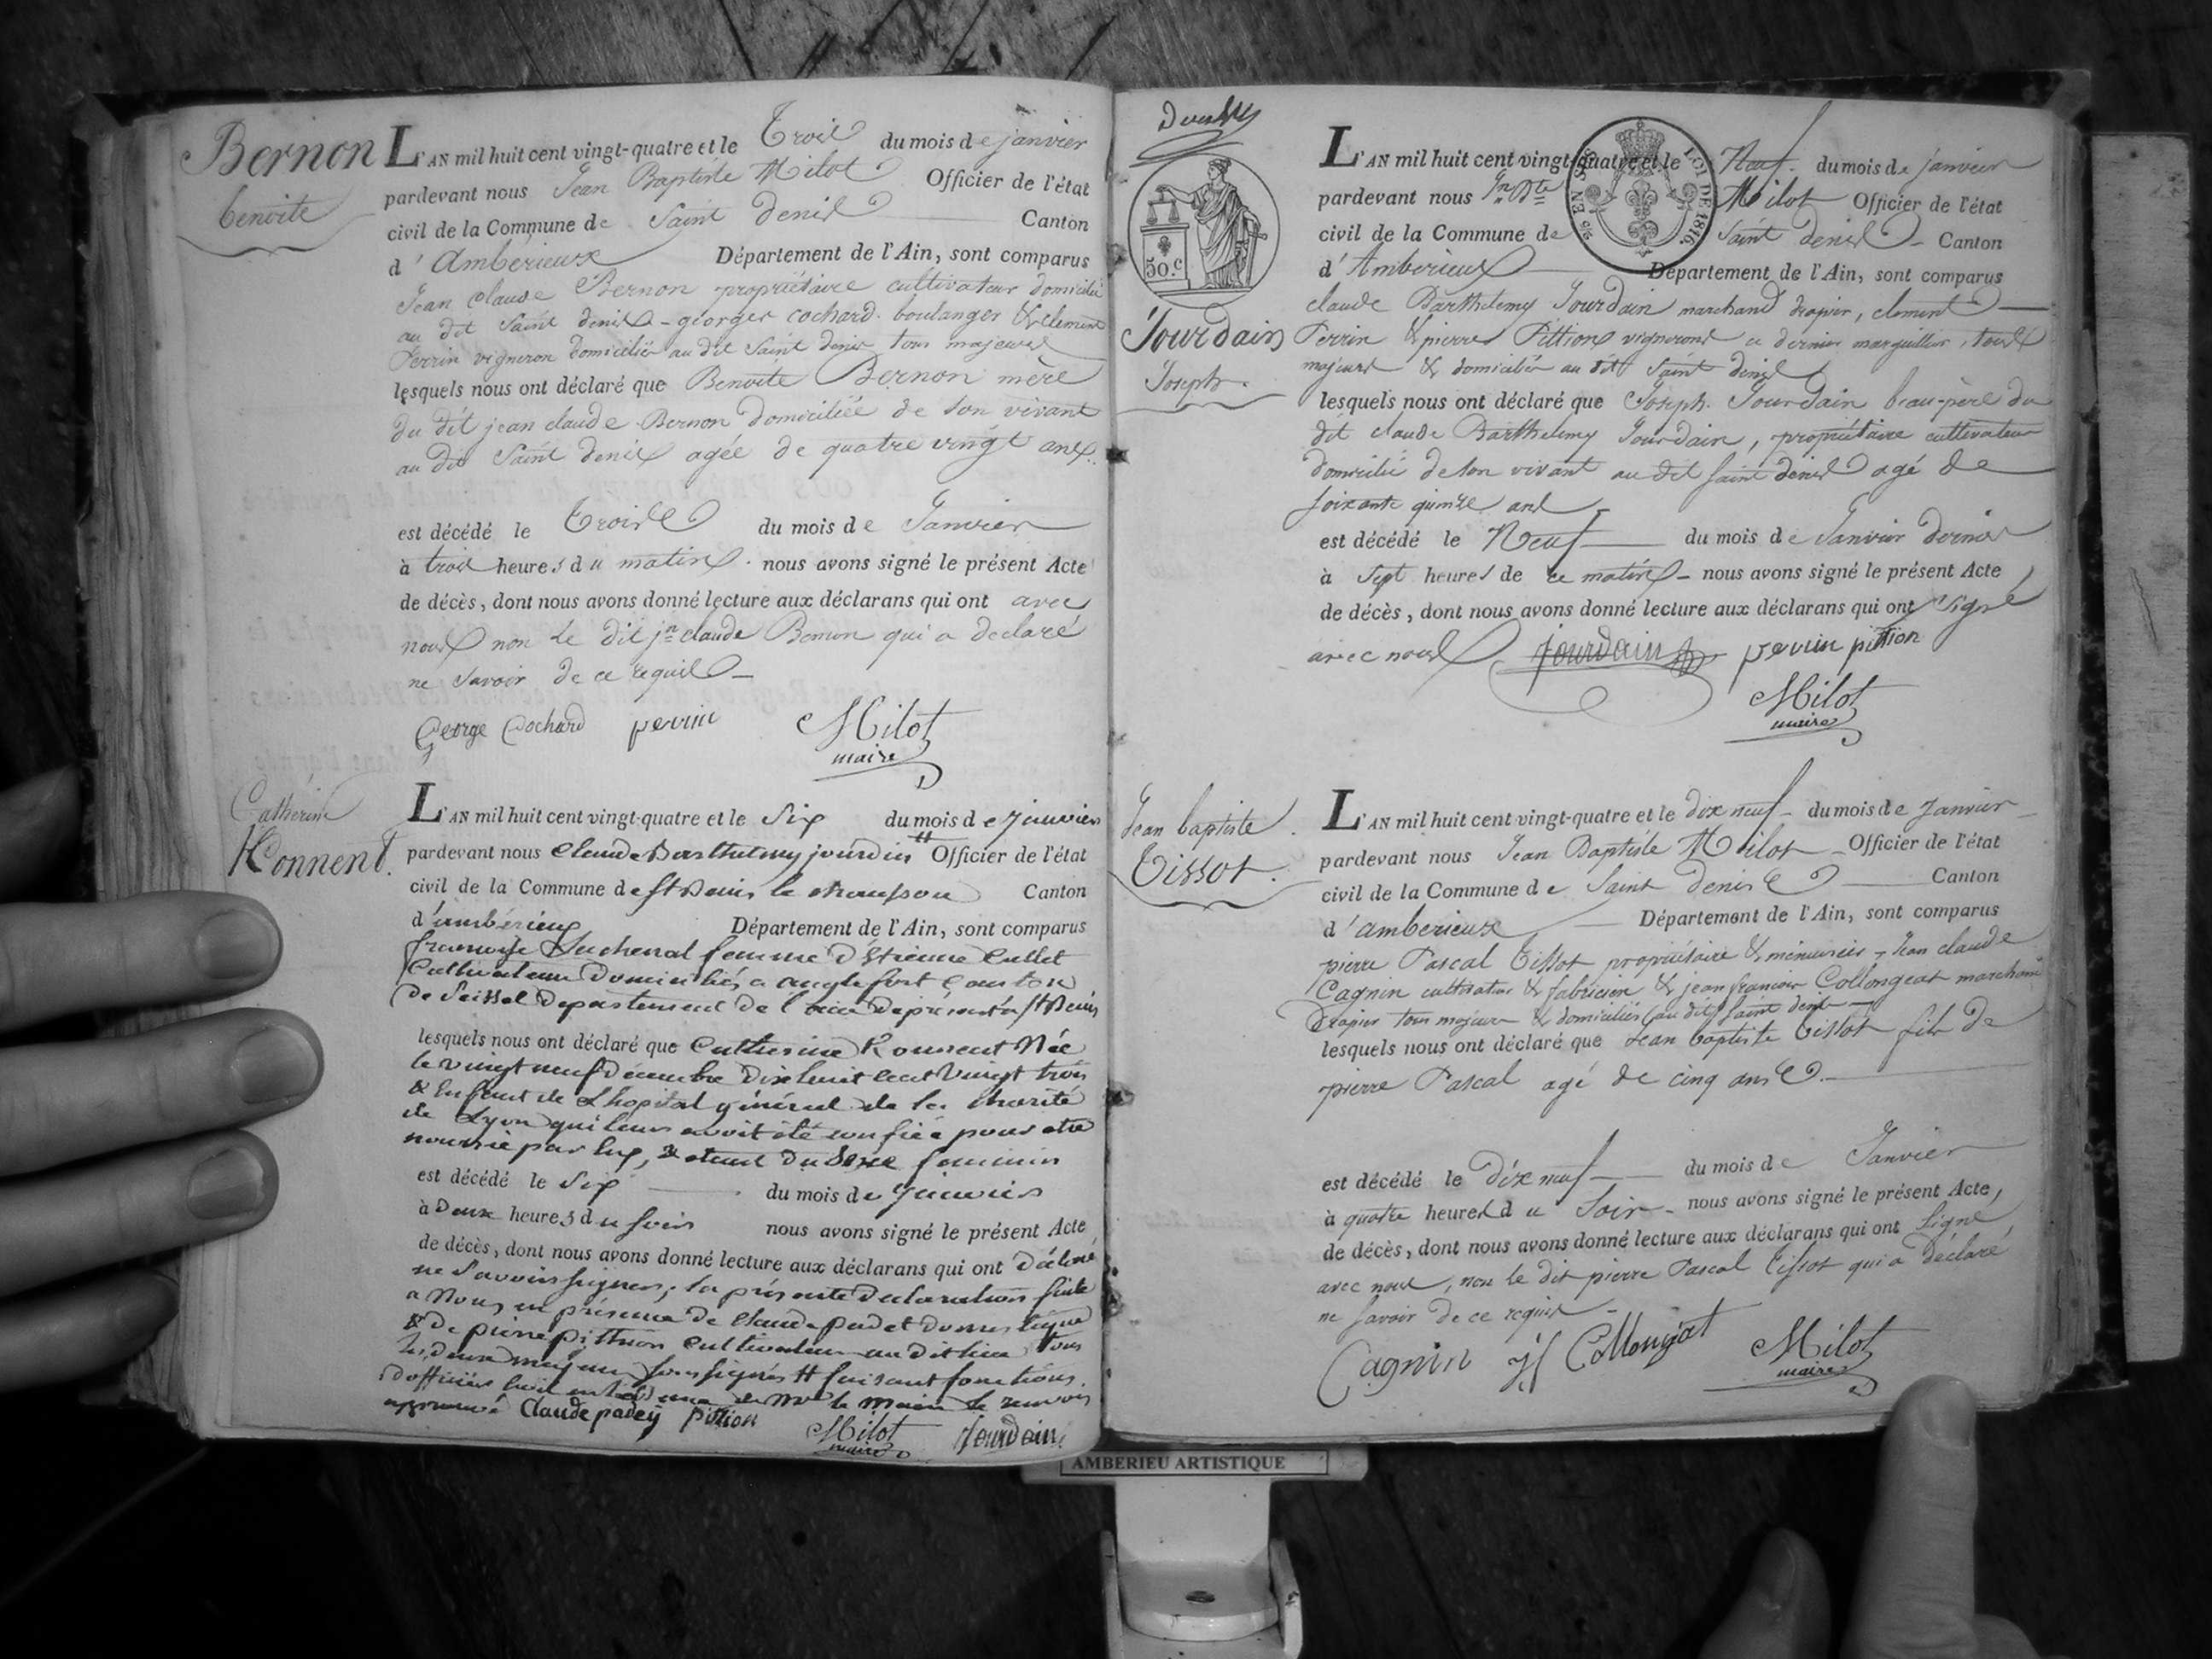 Bernon
benoite
L'AN mil huit cent vingt-quatre et le Trois du mois de janvier
pardevant nous Jean Baptiste Milot Officier de l'état
civil de la Commune de Saint denis Canton
d'Ambérieux Département de l'Ain, sont comparus
Jean claude Bernon propriétaire cultivateur domicilié
au dit Saint denis - georges cochard boulanger & clement
Perrin vigneron domicilié au dit Saint denis tous majeurs
lesquels nous ont déclaré que Benoite Bernon mère
du dit jean claude Bernon domiciliée de son vivant
au dit Saint denis agée de quatre vingt ans
est décédé le Trois du mois de Janvier
à trois heures du matin. nous avons signé le présent Acte
de décès, dont nous avons donné lecture aux déclarans qui ont avec
nous non le dit jn claude Bernon qui a declaré
ne Savoir de ce requis
George Cochard perrin Milot
maire
Catherine
Konnent.
L'AN mil huit cent vingt-quatre et le Six du mois de janvier
pardevant nous Claude Barthelmy jourdin # Officier de l'état
civil de la Commune de St Denis le chausson Canton
d'ambérieux Département de l'Ain, sont comparus
françoise Suchenal femme d'Etienne Cullet
Cultivateur Domiciliés a anglefort Canton
de Seissel departement de l'ain de présent a St Denis
lesquels nous ont déclaré que Catherine Konnent Née
le vingt neuf décembre Dix huit cent Vingt trois
& Enfant de L'hopital général de la charité
de Lyon qui leur avoit été confiée pour etre
nourrie par lux, & etant du Sexe feminin
est décédé le Six du mois de janvier
à Deux heures du soir nous avons signé le présent Acte
de décès, dont nous avons donné lecture aux déclarans qui ont Déclaré
ne Savoir signer; la présente declaration faite
a Nous en présence de Claude padet domestique
& De pierre pittion Cultivateur au dit lieu Tous
les deux majeurs soussignés # faisant fonctions
d'officier Civil en de Mr le Maire le renvoi
approuvé Claude padey pittion Milot jourdain
maire
Double
50.c
Jourdain
Joseph.
EN SUS LOI DE 1816.
L'AN mil huit cent vingt-quatre et le Neuf du mois de janvier
pardevant nous Jn Bte Milot Officier de l'état
civil de la Commune de Saint denis - Canton
d'Amberieux Département de l'Ain, sont comparus
claude Barthelemy Jourdain marchand drapier, clement
Perrin & pierre Pittion vignerons ce dernier marguillier, tous
majeurs & domiciliés au dit Saint denis
lesquels nous ont déclaré que Joseph Jourdain beau-père du
dit claude Barthelemy Jourdain, propriétaire cultivateur
domicilié de son vivant au dit Saint denis agé de
soixante quinze ans
est décédé le Neuf du mois de Janvier dernier
à sept heures de ce matin - nous avons signé le présent Acte
de décès, dont nous avons donné lecture aux déclarans qui ont Signé
avec nous jourdain perrin pittion
Milot
maire
Jean baptiste
Tissot.
L'AN mil huit cent vingt-quatre et le dix neuf - du mois de Janvier
pardevant nous Jean Baptiste Milot - Officier de l'état
civil de la Commune de Saint Denis Canton
d'amberieux Département de l'Ain, sont comparus
pierre Pascal Tissot propriétaire & menuisier - Jean claude
Cagnin cultivateur & fabricien & jean françois Collongeat marchand
Drapier tous majeurs & domiciliés au dit Saint denis
lesquels nous ont déclaré que Jean baptiste Tissot fils de
pierre Pascal agé de cinq ans
est décédé le dix neuf du mois de Janvier
à quatre heures du Soir - nous avons signé le présent Acte,
de décès, dont nous avons donné lecture aux déclarans qui ont Signé
avec nous, non le dit pierre Pascal Tissot qui a déclaré
ne Savoir de ce requis -
Cagnin Jf Collongeat Milot
maire
AMBERIEU ARTISTIQUE